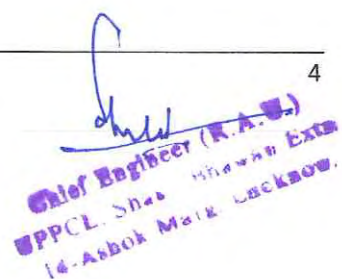 4
Chief Engineer (R.A.U.)
UPPCL, Bhawan Extn
14-Ashok Marg, Lucknow.